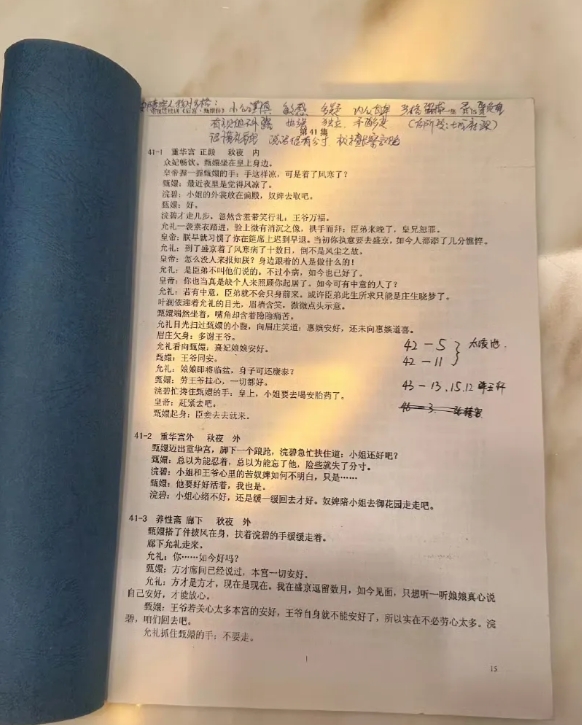 第41集
41-1 重华宫 正殿 秋夜 内
众妃畅饮。甄嬛绿在皇上身边。
皇帝握一握甄嬛的手：手这样凉，可是着了风寒了？
甄嬛：最近夜里是觉得风凉了。
浣碧：小姐的外裳放在厢殿，奴婢去取吧。
甄嬛：好。
浣碧才走几步，忽然含羞带笑行礼：王爷万福。
允礼一袭素衣踏进，脸上微有消沉之像，拱手而拜：臣弟来晚了，皇兄恕罪。
皇帝：朕早就习惯了你在筵席上迟到早退。当初你执意要去盛京，如今人都添了几分憔悴。
允礼：到了盛京着了风寒病了十数日，倒不是风尘之故。
皇帝：怎么没人来报知朕？身边跟着的人是做什么的！
允礼：是臣弟不叫他们说的，不过小病，如今也已好了。
皇帝：你也当真是缺个人来照顾你起居了。如今可有中意的人了？
允礼：若有中意，臣弟就不会只身前来。或许臣弟此生所求只能是庄生晓梦了。
叶澜依迷着允礼的目光，眉梢含笑，微微点头示意。
甄嬛端然坐着，嘴角却含着隐隐痛苦。
允礼目光扫过甄嬛的小腹，向眉庄笑道：惠嫔安好，还未向惠嫔道喜。
眉庄欠身：多谢王爷。
允礼看向甄嬛：熹妃娘娘安好。
甄嬛：王爷同安。
允礼：娘娘即将临盆，身子可还康泰？
甄嬛：劳王爷挂心，一切都好。
浣碧忙搀住甄嬛的手：皇上，小姐要去喝安胎药了。
皇帝：赶紧去吧。
甄嬛起身：臣妾去去就来。
42-5
42-11
43-13.15.12
41-2 重华宫外 秋夜 外
甄嬛迈出重华宫，脚下一个踉跄，浣碧急忙扶住道：小姐还好吧？
甄嬛：总以为能忍着，总以为能忘了他，险些就失了分寸。
浣碧：小姐和王爷心里的苦奴婢如何不明白，只是……
甄嬛：他要好好活着，我也是。
浣碧：小姐心绪不好，还是缓一缓回去才好。奴婢陪小姐去御花园走走吧。
41-3 养性斋 廊下 秋夜 外
甄嬛搭了件披风在身，扶着浣碧的手缓缓走着。
廊下允礼走来。
允礼：你……如今好吗？
甄嬛：方才席间已经说过，本宫一切安好。
允礼：方才是方才，现在是现在。我在盛京逗留数月，如今见面，只想听一听娘娘真心说
自己安好，才能放心。
甄嬛：王爷若关心太多本宫的安好，王爷自身就不能安好了，所以实在不必劳心太多。浣
碧，咱们回去吧。
允礼抓住甄嬛的手：不要走。
1
15